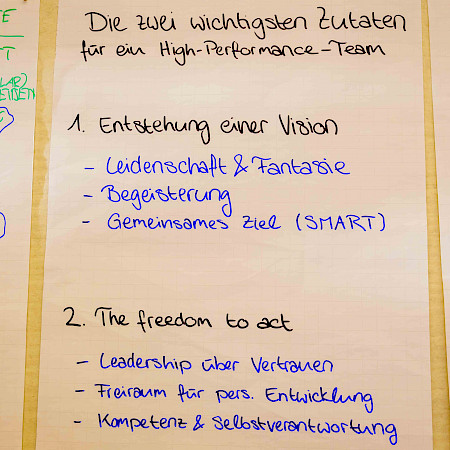 Die zwei wichtigsten Zutaten
für ein High-Performance-Team
1. Entstehung einer Vision
- Leidenschaft & Fantasie
- Begeisterung
- Gemeinsames Ziel (SMART)
2. The freedom to act
- Leadership über Vertrauen
- Freiraum für pers. Entwicklung
- Kompetenz & Selbstverantwortung